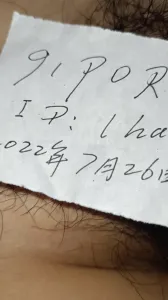 91POR
ID: lha
2022年7月26日